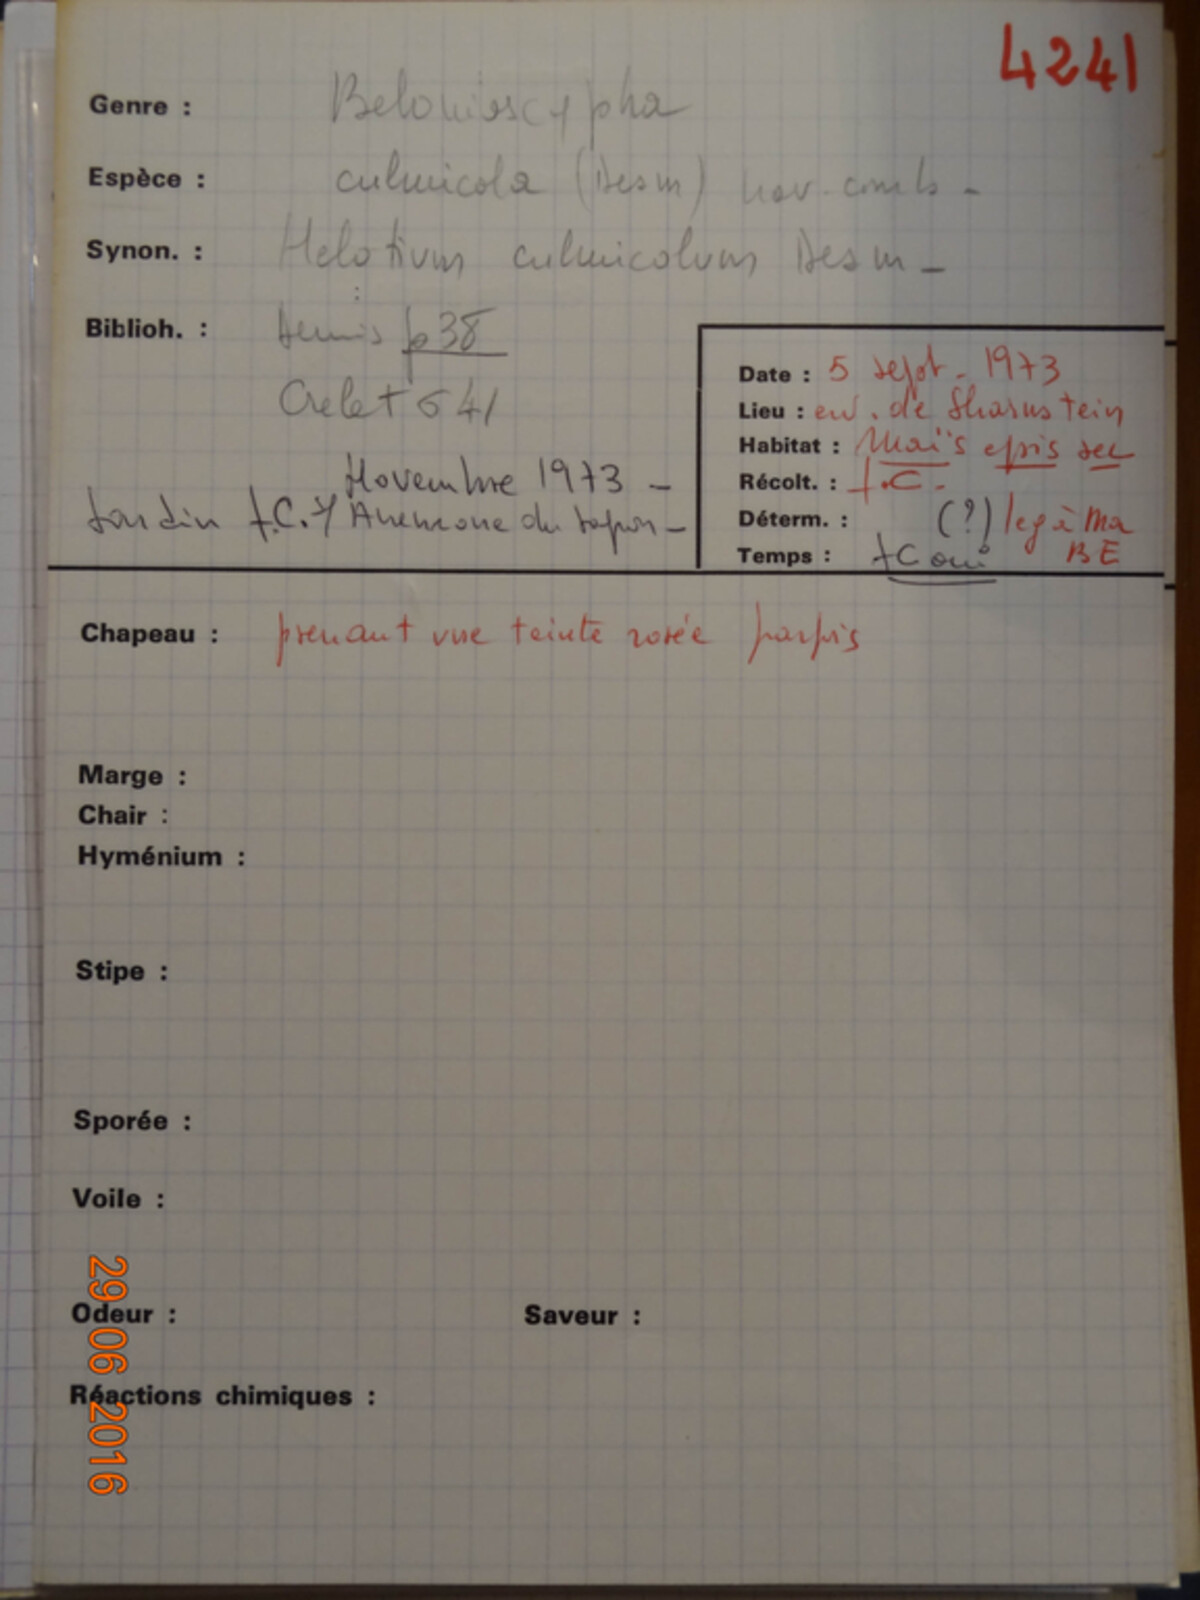 4241
Genre : Belonioscypha
Espèce : culmicola (Desm) nov. comb -
Synon. : Helotium culmicolum Desm -
Biblioh. : Dennis p 38
Crelet 641
Novembre 1973 -
Jardin f.C. s/ Anemone du Japon -
Date : 5 sept. 1973
Lieu : env. de
Habitat : Maïs epis sec
Récolt. : f.C.
Déterm. : (?) leg à Ma
Temps : fC oui BE
Chapeau : prenant une teinte rosée parfois
Marge :
Chair :
Hyménium :
Stipe :
Sporée :
Voile :
Odeur : Saveur :
Réactions chimiques :
29 06 2016